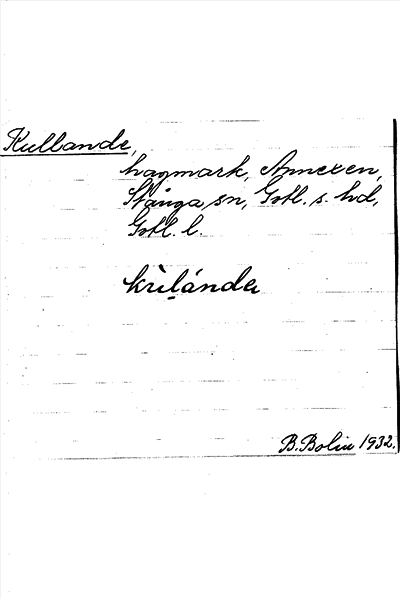 Kullande,
hagmark, Annexen,
Stånga sn, Gotl. s. hd,
Gotl. l.
B. Bolin 1932.